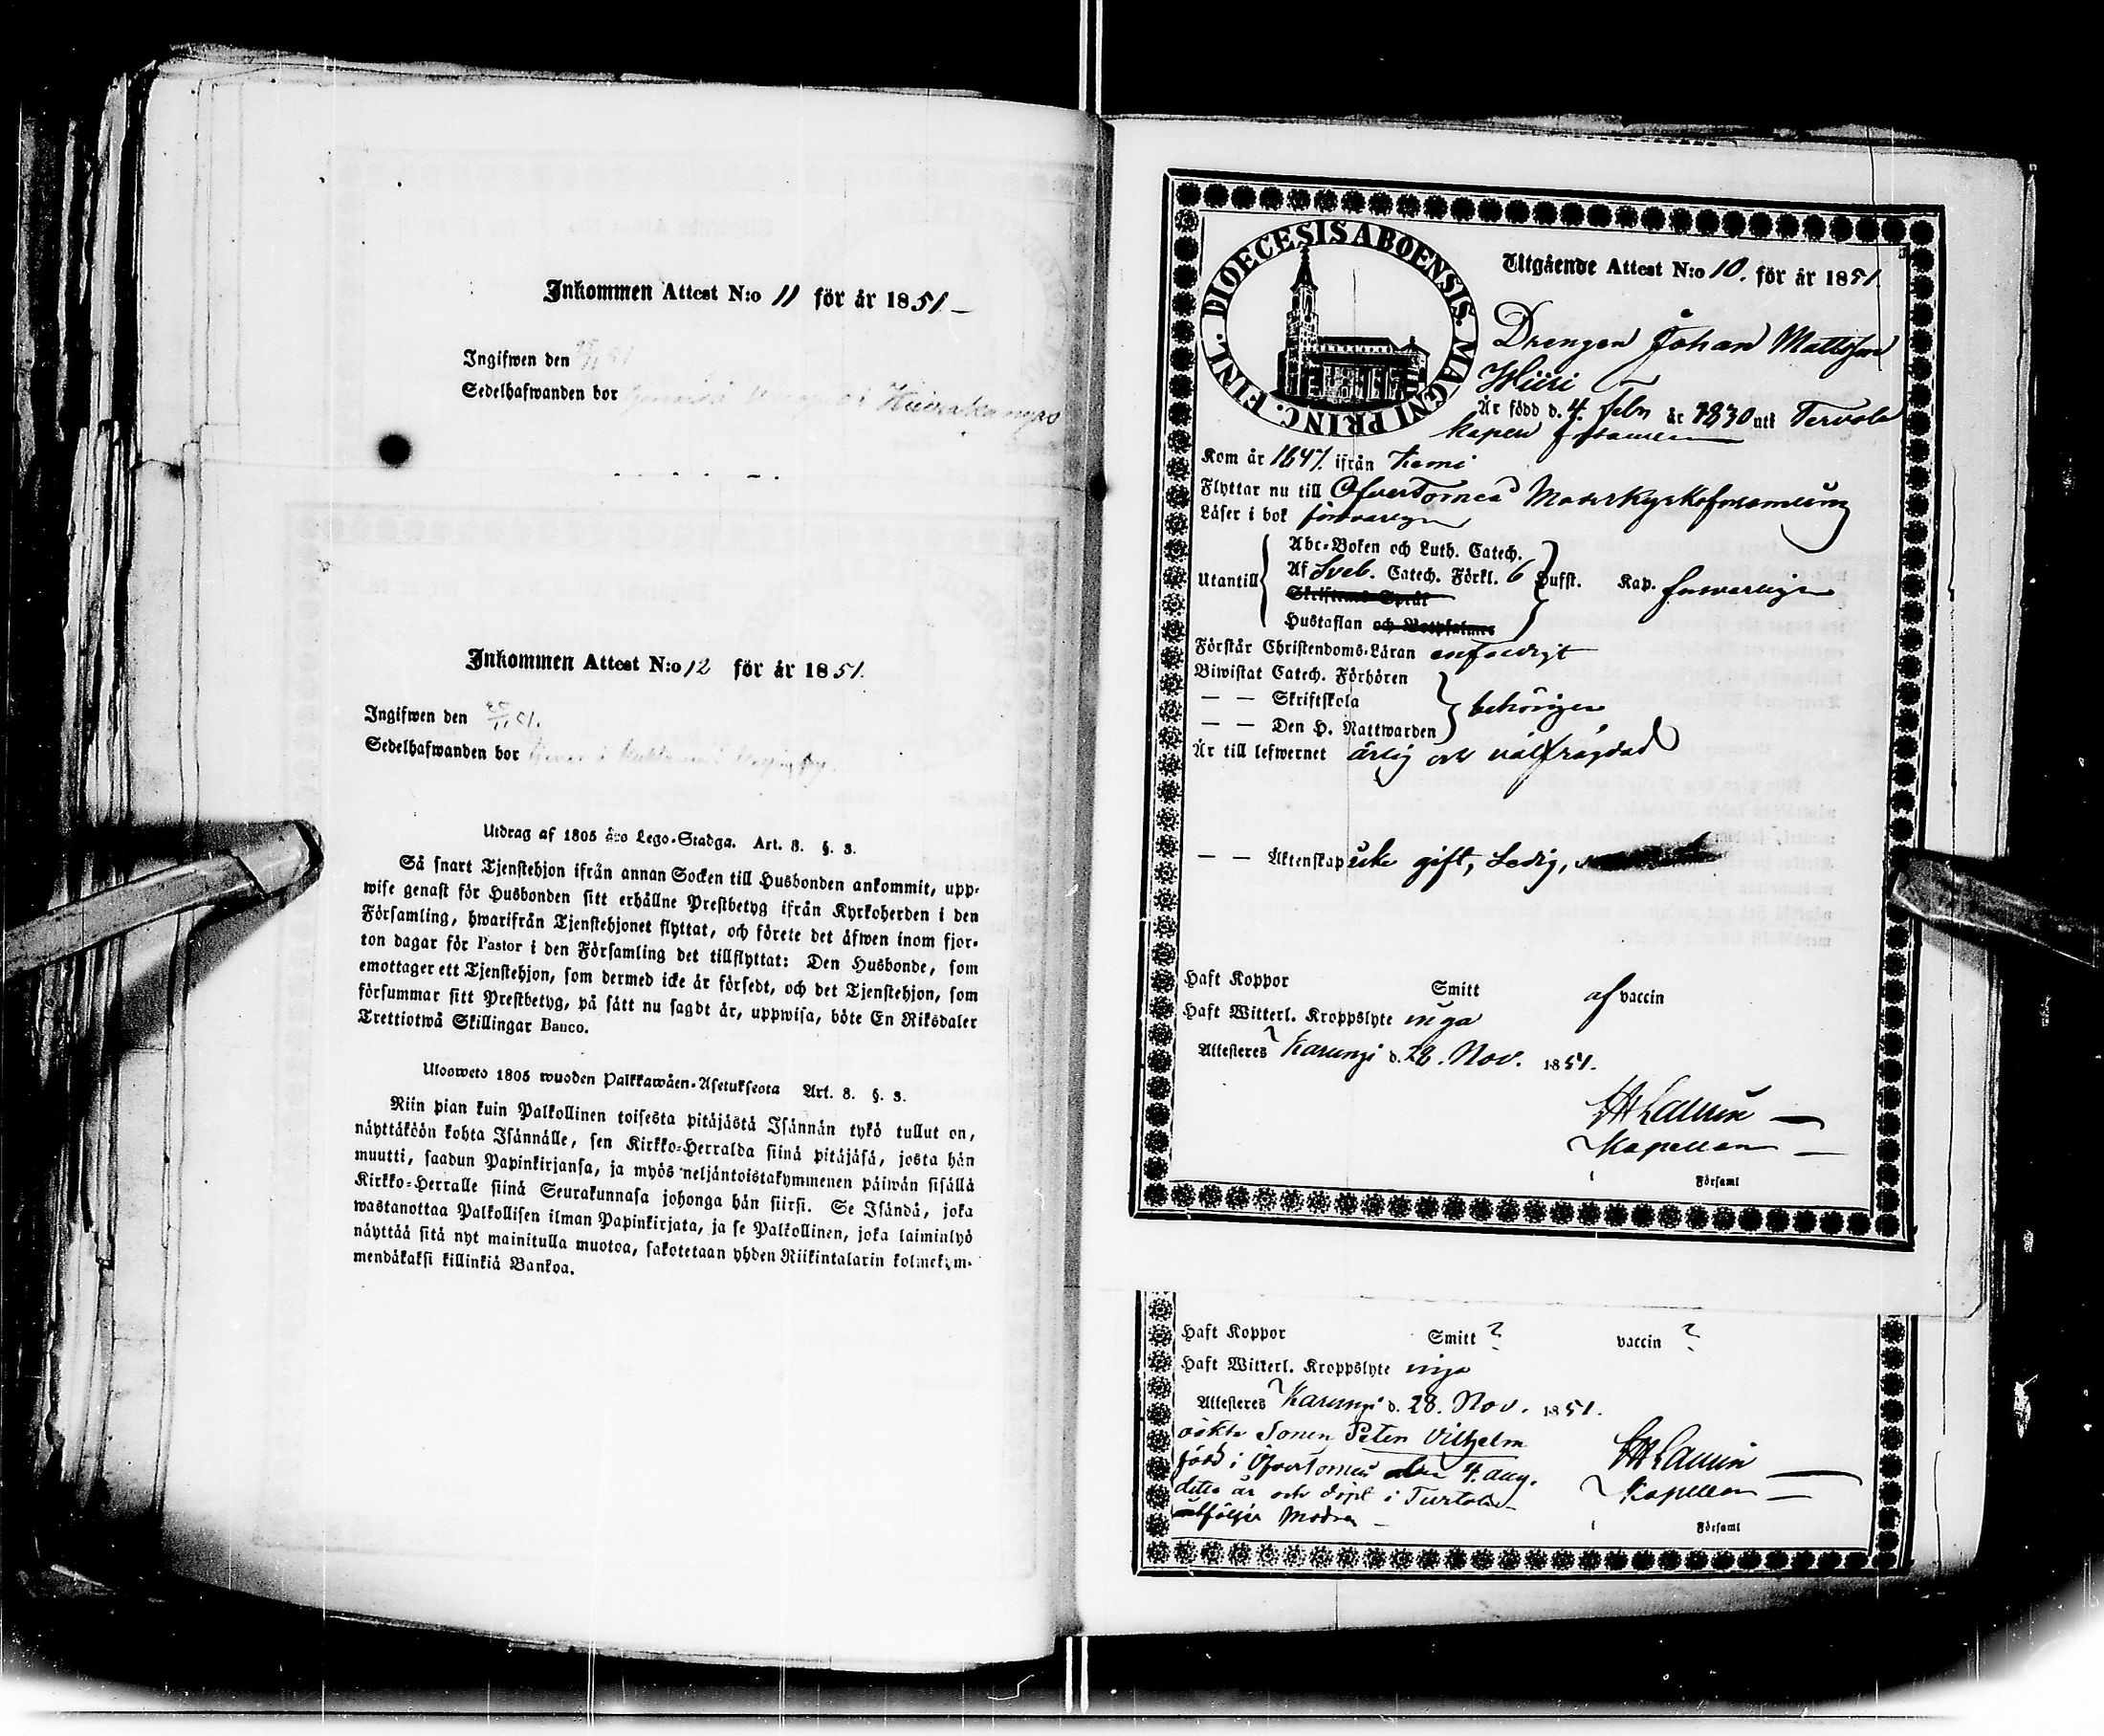 Inkommen Attest N:o 11 för år 1851
Ingifwen den
Sedelhafwanden bor
Inkommen Attest N:o 12 för år 1851.
Ingifwen den
Sedelhafwanden bor
Utdrag af 1805 års Lego-Stadga. Art. 8. §. 3.
Så snart Tjenstehjon ifrån annan Socken till Husbonden ankommit, upp-
wise genast för Husbonden sitt erhållne Prestbetyg ifrån Kyrkoherden i den
Församling, hwarifrån Tjenstehjonet flyttat, och förete det äfwen inom fjor-
ton dagar för Pastor i den Församling det tillflyttat: Den Husbonde, som
emottager ett Tjenstehjon, som dermed icke är försedt, och det Tjenstehjon, som
försummar sitt Prestbetyg, på sätt nu sagdt är, uppwisa, böte En Riksdaler
Trettiotwå Skillingar Banco.
Ulosweto 1805 wuoden Palkkawäen-Asetuksesta Art. 8. §. 3.
Niin pian kuin Palkollinen toisesta pitäjästä Isännän tykö tullut on,
näyttäköön kohta Isännälle, sen Kirkko-Herralda siinä pitäjäsä, josta hän
muutti, saadun Papinkirjansa, ja myös neljäntoistakymmenen päiwän sisällä
Kirkko-Herralle siinä Seurakunnasa johonga hän siirsi. Se Isändä, joka
wastanottaa Palkollisen ilman Papinkirjata, ja se Palkollinen, joka laiminlyö
näyttää sitä nyt mainitulla muotoa, sakotetaan yhden Riikintalarin kolmekym-
mendäkaksi killinkiä Bankoa.
DIOECESIS ABOENSIS. MAGNI PRINC. FINL.
Utgående Attest N:o 10. för år 1851.
Drengen Johan Mattsson
Wiiri
Är född d. 4. Febr år 1830 uti Tervola
Kapell
Kom år 1847. ifrån Kemi
Flyttar nu till Öfvertorneå Moderkyrkoförsamling
Läser i bok försvarligen
Utantill
Abc-Boken och Luth. Catech.
Af Sveb. Catech. Förkl. 6 Hufst. Kap. försvarligen
Skriftenes Språk
Hustaflan och Botpsalmer
Förstår Christendoms-Läran enfaldigt
Biwistat Catech. Förhören
— — Skriftskola
behörigen
— — Den H. Nattwarden
Är till lefwernet ärlig och välfrägdad
— — Äktenskap icke gift, Ledig,
Haft Koppor Smitt af vaccin
Haft Witterl. Kroppslyte inga
Attesteres Karungi d. 28. Nov. 1851.
Kapellan
i Församl
Haft Koppor Smitt ? vaccin ?
Haft Witterl. Kroppslyte inga
Attesteres Karungi d. 28. Nov. 1851.
äkta Sonen Peter Vilhelm
född i Öfvertorneå den 4. aug.
detta år och döpt i Turtola
åtföljer Modren
Kapellan
i Församl